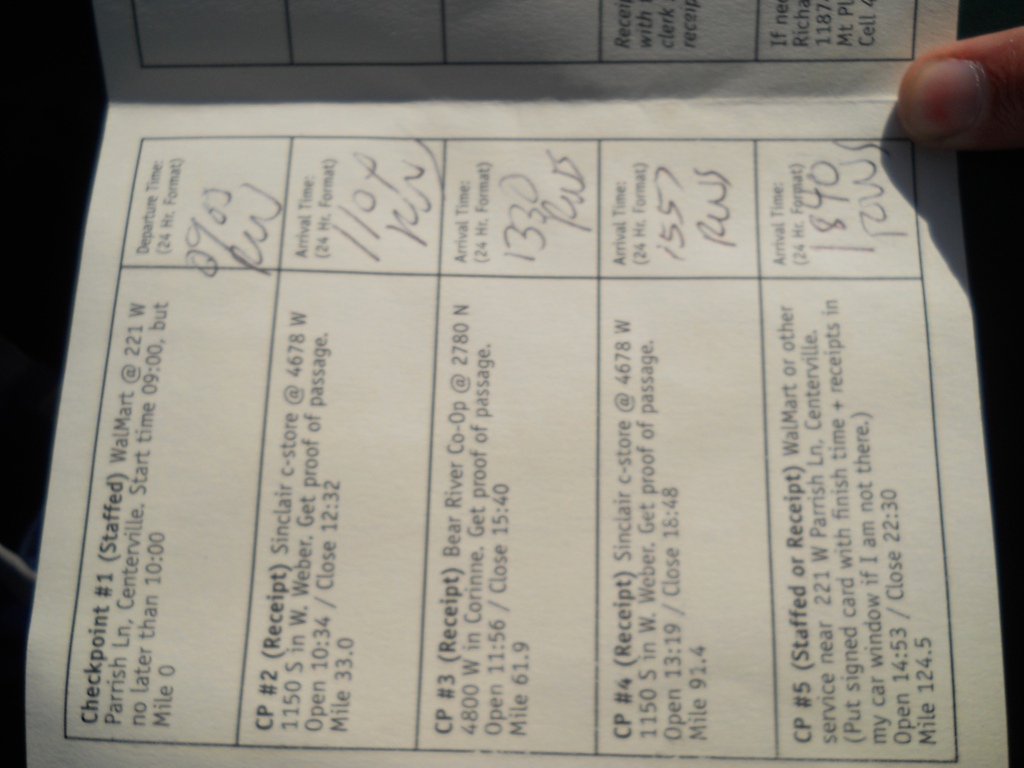 Checkpoint #1 (Staffed) WalMart @ 221 W
Parrish Ln, Centerville. Start time 09:00, but
no later than 10:00
Mile 0
Departure Time:
(24 Hr. Format)
RW
CP #2 (Receipt) Sinclair c-store @ 4678 W
1150 S in W. Weber. Get proof of passage.
Open 10:34 / Close 12:32
Mile 33.0
Arrival Time:
(24 Hr. Format)
RW
CP #3 (Receipt) Bear River Co-Op @ 2780 N
4800 W in Corinne. Get proof of passage.
Open 11:56 / Close 15:40
Mile 61.9
Arrival Time:
(24 Hr. Format)
1330
RWS
CP #4 (Receipt) Sinclair c-store @ 4678 W
1150 S in W. Weber. Get proof of passage.
Open 13:19 / Close 18:48
Mile 91.4
Arrival Time:
(24 Hr. Format)
1557
RWS
CP #5 (Staffed or Receipt) WalMart or other
service near 221 W Parrish Ln, Centerville.
(Put signed card with finish time + receipts in
my car window if I am not there.)
Open 14:53 / Close 22:30
Mile 124.5
Arrival Time:
(24 Hr. Format)
1840
RWS
Receip
with
clerk
receip
If nee
Richa
1187
Mt Pl
Cell 4